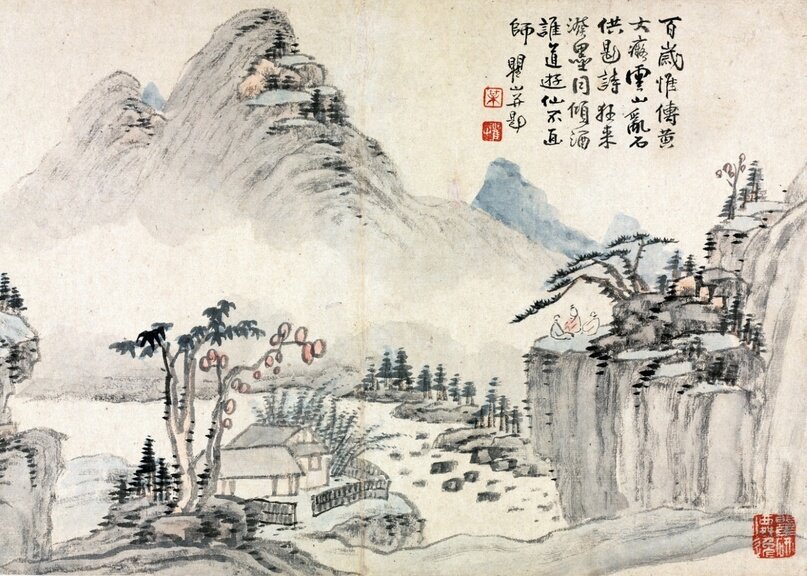 百歲惟傳黃
大癡雲山亂石
供題詩狂来
潑墨同傾酒
誰道遊仙不
師 瞿山并題